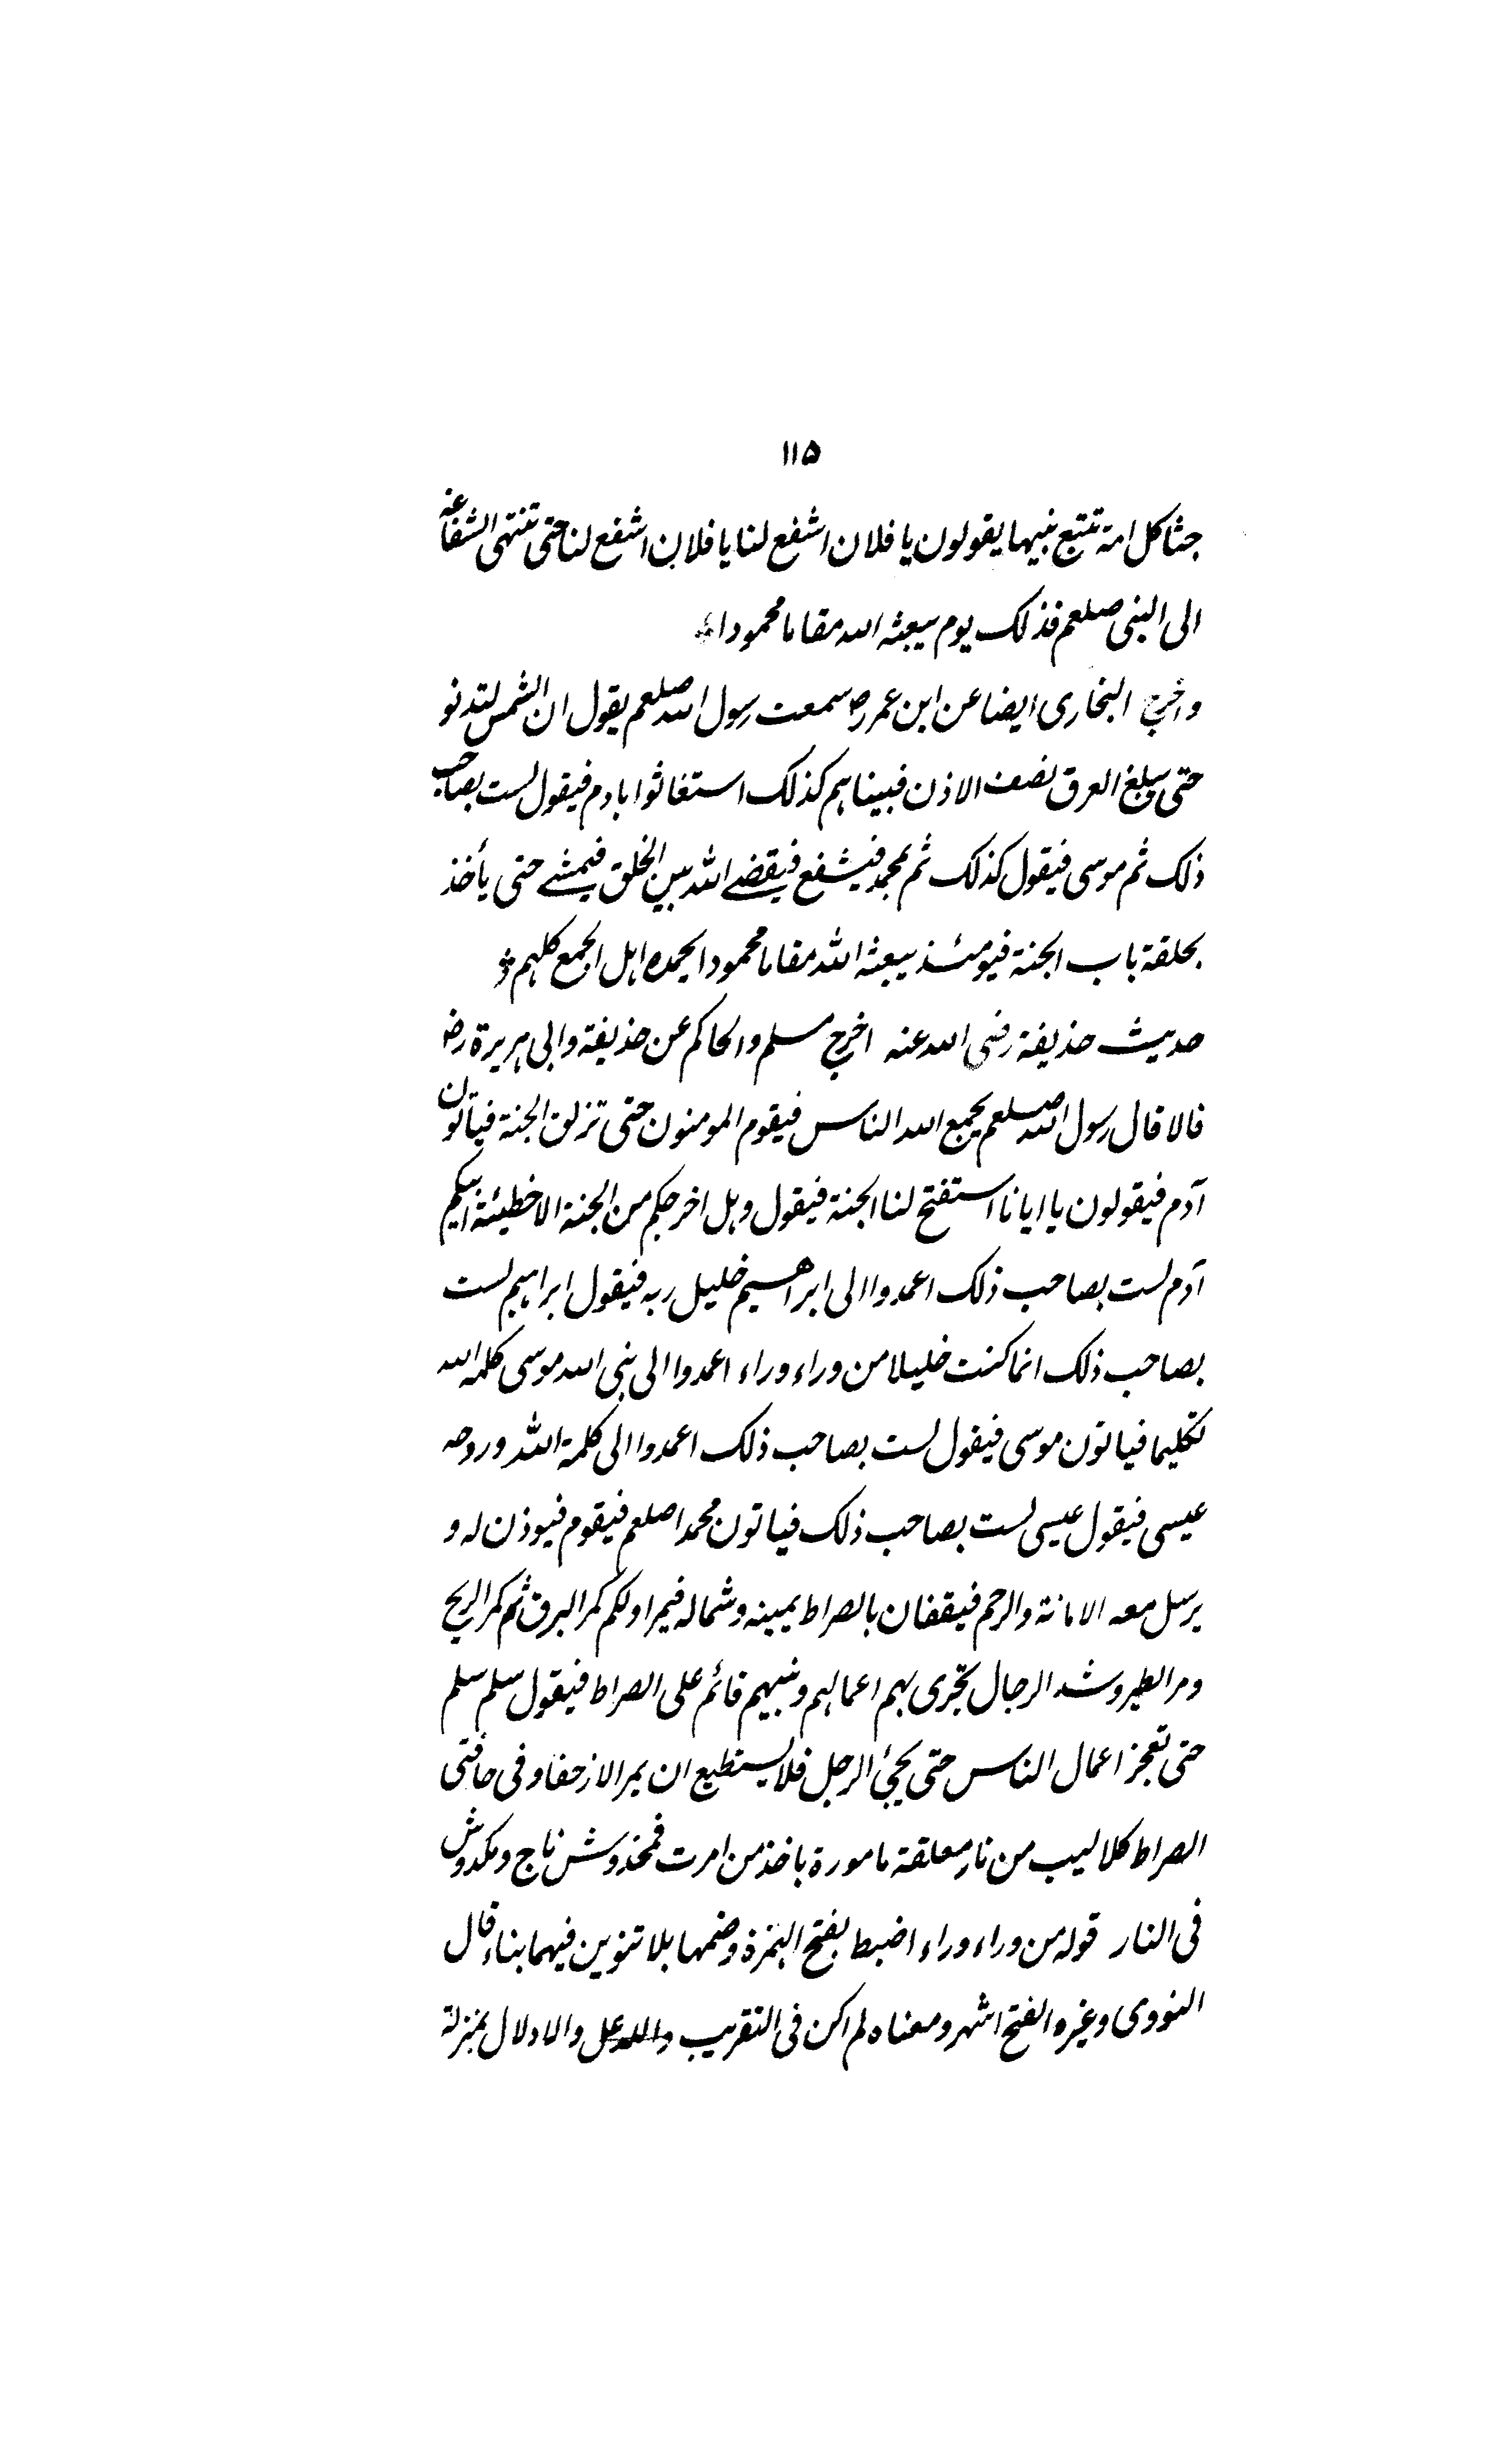 ۱۱۵
جثا كل امة تتبع نبيها يقولون يا فلان اشفع لنا يا فلان اشفع لنا حتى تنتهى الشفاعة
الى النبى صلعم فذلك يوم يبعثه الله مقاما محمودا
واخرج البخارى ايضا عن ابن عمر رض سمعت رسول الله صلعم يقول ان الشمس لتدنو
حتى يبلغ العرق نصف الاذن فبيناهم كذلك استغاثوا بادم فيقول لست بصاحب
ذلك ثم موسى فيقول كذلك ثم بمحمد فيشفع فيقضے الله بين الخلق فيمشے حتى يأخذ
بحلقة باب الجنة فيومئذ يبعثه الله مقاما محمودا يحمده اهل الجمع كلهم
حديث حذيفة رضى الله عنه اخرج مسلم والحاكم عن حذيفة وابى هريرة رض
قالا قال رسول الله صلعم يجمع الله الناس فيقوم المومنون حتى تزلق الجنة فيأتون
آدم فيقولون يا ابانا استفتح لنا الجنة فيقول وهل اخرجكم من الجنة الا خطيئة ابيكم
آدم لست بصاحب ذلك اعمدوا الى ابراهيم خليل ربه فيقول ابراهيم لست
بصاحب ذلك انما كنت خليلا من وراء وراء اعمدوا الى نبى الله موسى كلمه الله
تكليما فياتون موسى فيقول لست بصاحب ذلك اعمدوا الى كلمة الله وروحه
عيسى فيقول عيسى لست بصاحب ذلك فياتون محمدا صلعم فيقوم فيوذن له و
يرسل معه الامانة والرحم فيقفان بالصراط يمينه وشماله فيمر اولكم كمر البرق ثم كمر الريح
ومر الطير وشد الرجال تجرى بهم اعمالهم ونبيهم قائم على الصراط فيقول سلم سلم
حتى تعجز اعمال الناس حتى يجئ الرجل فلا يستطيع ان يمر الا زحفا وفى حافتى
الصراط كلاليب من نار معلقة مامورة باخذ من امرت فمخدوش ناج ومكدوش
فى النار قوله من وراء وراء اضبط بفتح الهمزة وضمها بلا تنوين فيهما بناء قال
النووى وغيره الفتح اشهر ومعناه لم اكن فى التقريب والادلال بمنزلة